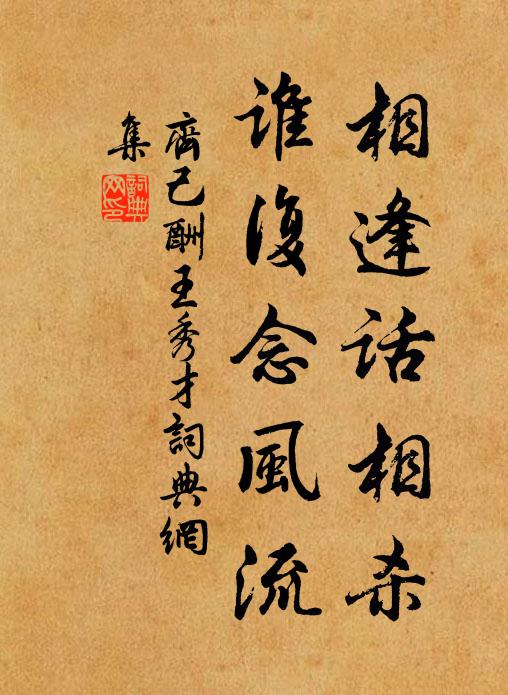 相逢話相杀
誰復念風流
齊己酬王秀才詞典網
集
詞典
网印